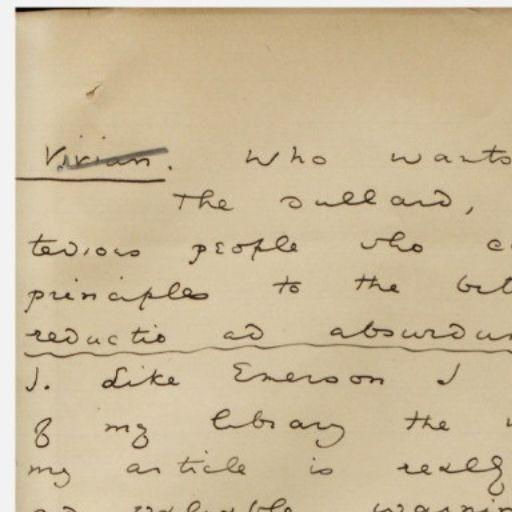 Vivian. Who wants
The dullard,
tedious people who c
principles to the bit
reductio ad absurdum
I. Like Emerson I
of my library the w
my article is really
valuable warnin